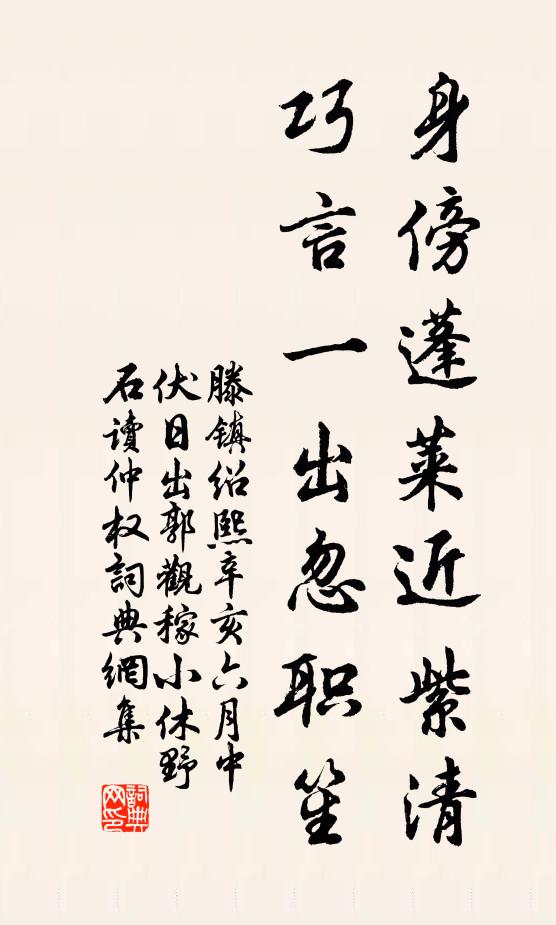 身傍蓬莱近紫清
巧言一出忽职笙
滕镇绍熙辛亥六月中
伏日出郭觀稼小休野
石讀仲权詞典網集
詞典网印